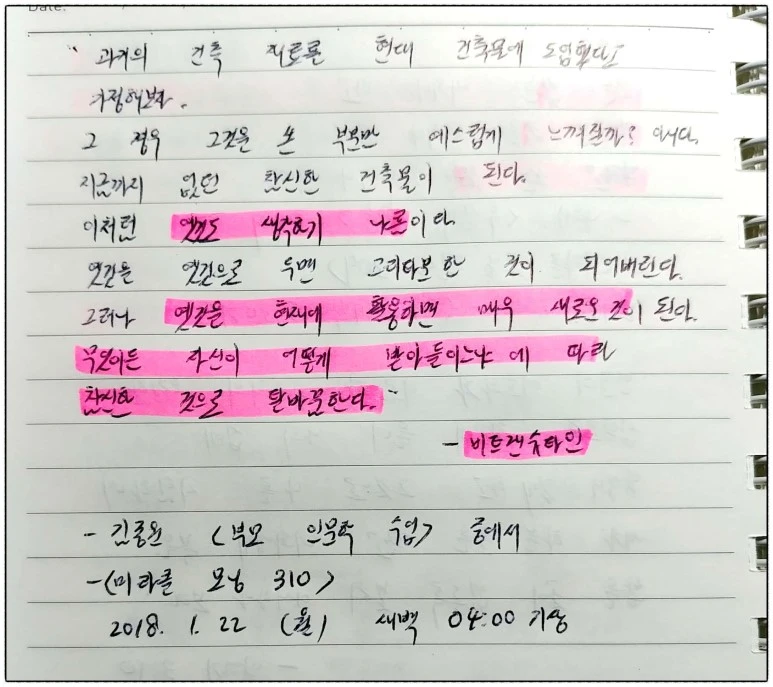 Date:
" 과거의 건축 재료를 현대 건축물에 도입했다고
가정해보자.
그 경우 그것을 쓴 부분만 예스럽게 느껴질까? 아니다.
지금까지 없던 참신한 건축물이 된다.
이처럼 옛것도 생각하기 나름이다.
옛것을 옛것으로 두면 고리타분한 것이 되어버린다.
그러나 옛것을 현재에 활용하면 매우 새로운 것이 된다.
무엇이든 자신이 어떻게 받아들이느냐에 따라
참신한 것으로 탈바꿈한다. "
- 비트겐슈타인
- 김종원 <부모 인문학 수업> 중에서
- <미라클 모닝 310>
2018. 1. 22 (월) 새벽 04:00 기상